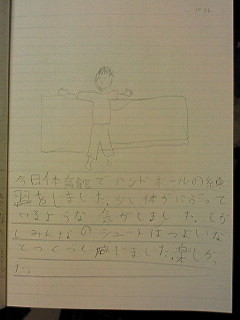 今日体育館でハンドボールの練
習をしました。少し体がにぶって
いるような 気がしました。しか
しみんなのシュートはつよいな
とつくづく感じました。楽しかっ
た。